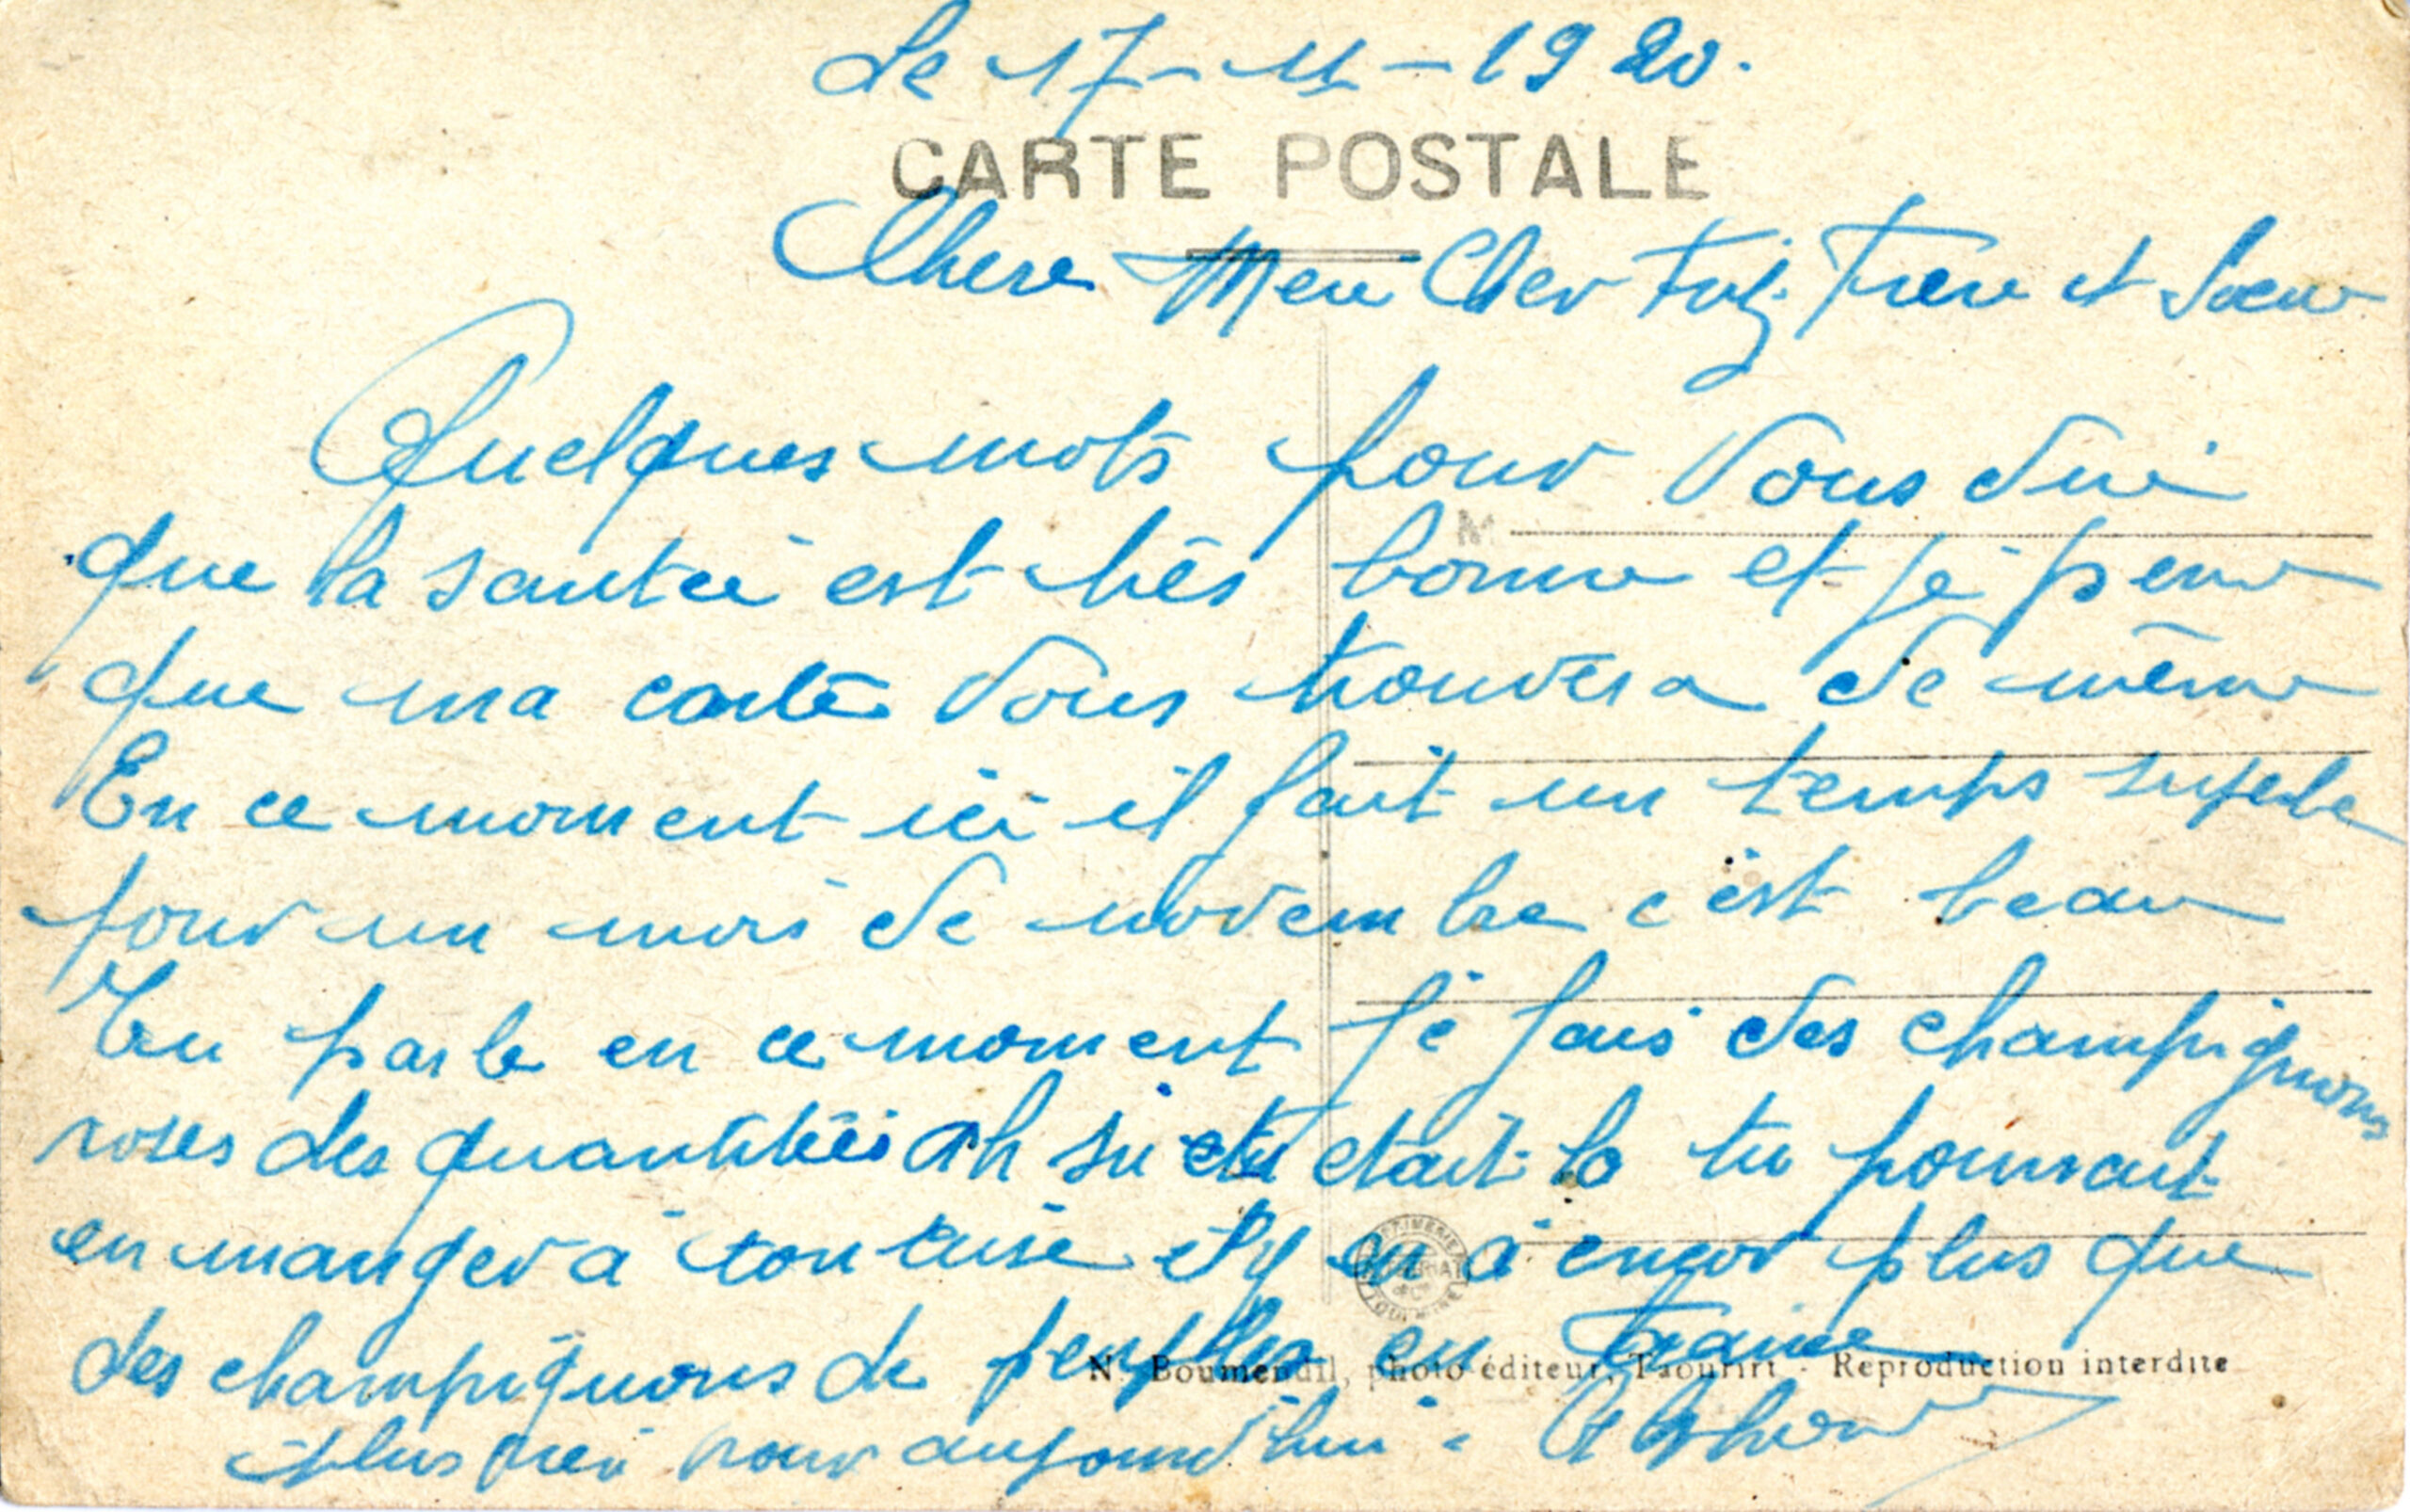 Le 17-11-1920.
CARTE POSTALE
Chere Mere Cher Frere et Soeur
Quelques mots pour Vous dire
M
que la santée est très bonne et je pense
que ma carte Vous trouvera de même
En ce moment ici il fait un temps superbe
pour un mois de novembre c'est beau
Tu parle en ce moment je fais des champignons
roses des quantitées Ah si tu etait la tu pourrait
en manger a ton aise il y en a encor plus que
des champignons de peuplier en France
N. Boumendil, photo-éditeur, Taourirt - Reproduction interdite
plus rien pour aujourd'hui.